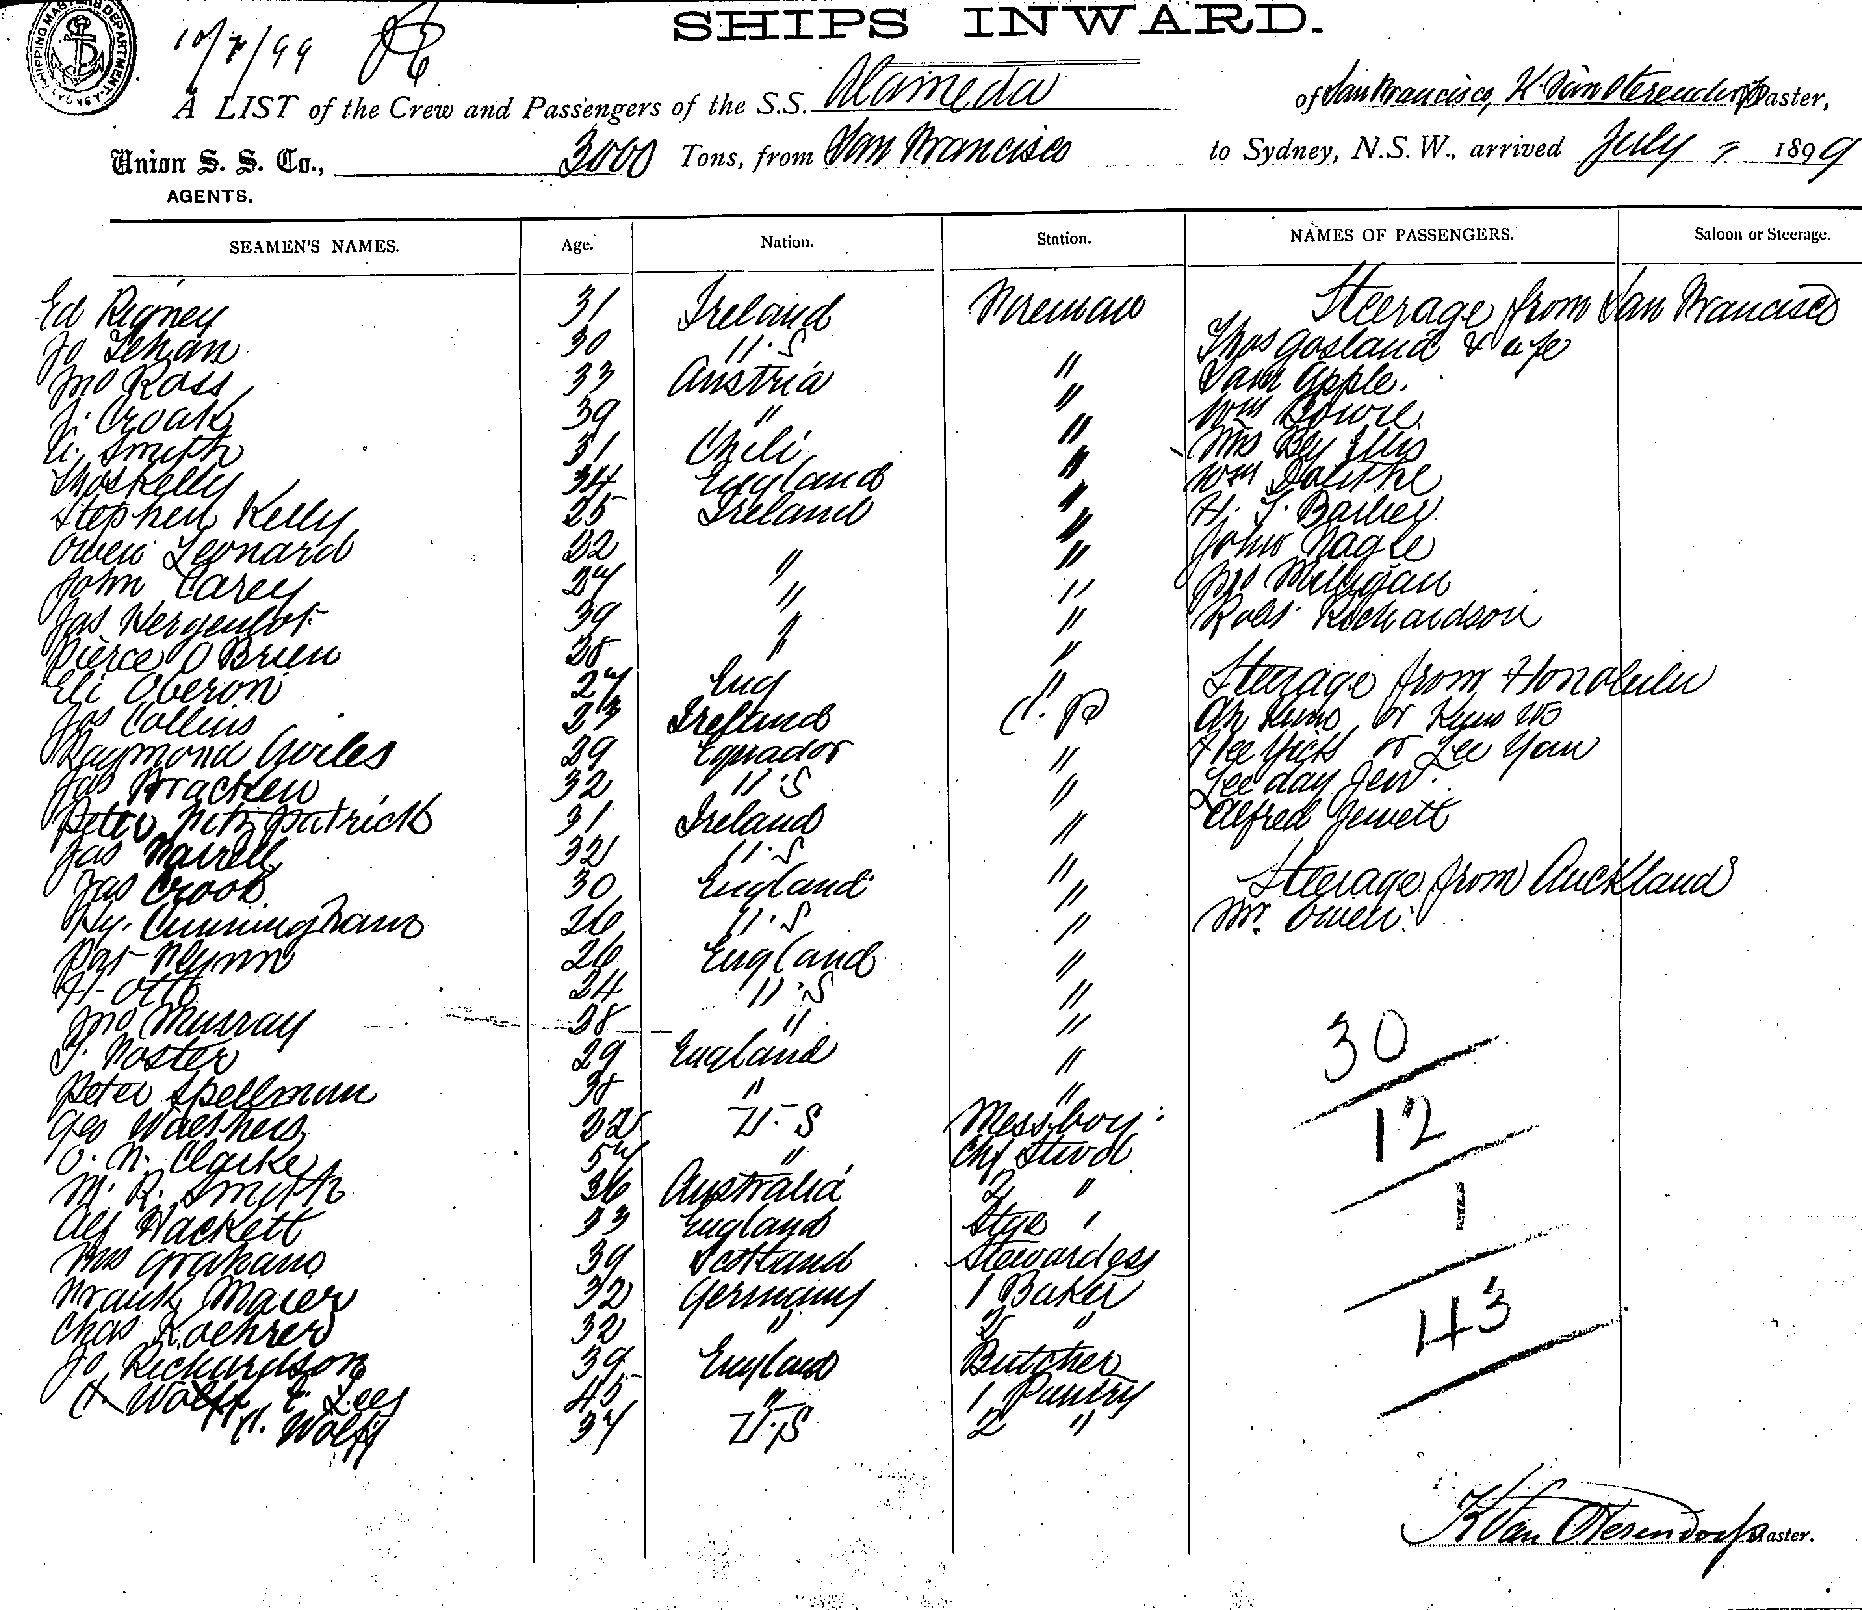 SHIPPING MASTERS DEPARTMENT
10/7/99
SHIPS INWARD.
A LIST of the Crew and Passengers of the S.S. Alameda of San Francisco, H Van Oterendorp Master,
Union S. S. Co., 3000 Tons, from San Francisco to Sydney, N.S.W., arrived July 7 1899
AGENTS.
SEAMEN'S NAMES. Age. Nation. Station. NAMES OF PASSENGERS. Saloon or Steerage.
Ed Rigney 31 Ireland Fireman Steerage from San Francisco
Jo Lehan 30 U.S " Thos Gosland & wife
Jno Ross 33 Austria " Sam Apple.
J. Croak 39 " " Wm Bowie
U. Smyth 31 Chili " Mrs Ellis
Thos Kelly 34 England " Wm
Stephen Kelly 25 Ireland " H. J. Barber
Owen Leonard 22 " " John Nagle
John Carey 27 " " Jno Milligan
Jas 39 " " Robt Richardson
Pierce O Brien 38 " "
Eli Oberon 27 Eng " Steerage from Honolulu
Jos Collins 23 Ireland C. P Ah or
Raymond Aviles 29 Equador " Hee Yick or Lee Yau
Jas Bracken 32 U S " Lee day Jew.
Peter Fitzpatrick 31 Ireland " Alfred Jewett
Jas Farrell 32 U.S "
Jas Crook 30 England " Steerage from Auckland
Hy. Cunningham 26 U.S " Mr. Owen.
Pat Flynn 26 England "
H. Otto 24 U.S "
Jno Murray 28 " " 30
J. Foster 29 England "
Peter Spellman 38 " "
Geo Walthers 22 U.S Messboy 12
O. N. Clarke 57 " Chf Stwd
M. R. Smyth 36 Australia 2 "
Alf Hackett 33 England Stge " 1
Mrs Graham 39 Scotland Stewardess
Frank Maier 32 Germany 1 Baker
Chas Koehrer 32 " 2 " 43
Jo Richardson 39 England Butcher
H Wolff E. Lees 45 " 1 Pantry
H. Wolff 37 U.S 2 "
H Van Oterendorp Master.